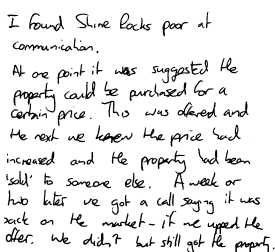 I found Shine Rocks poor at
communication.
At one point it was suggested the
property could be purchased for a
certain price. This was offered and
the next we knew the price had
increased and the property had been
'sold' to someone else. A week or
two later we got a call saying it was
back on the market - if we upped the
offer. We didn't but still got the property.